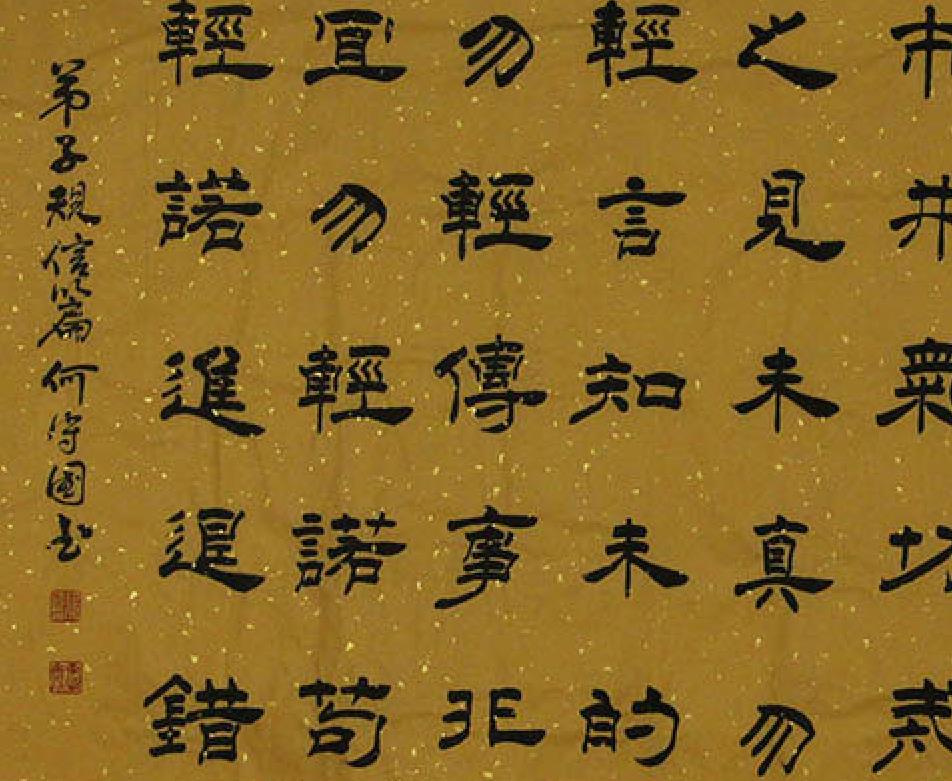 市井氣切戒
之見未真勿
輕言知未的
勿輕傳事非
宜勿輕諾苟
輕諾進退錯
弟子規信以篇何守國书